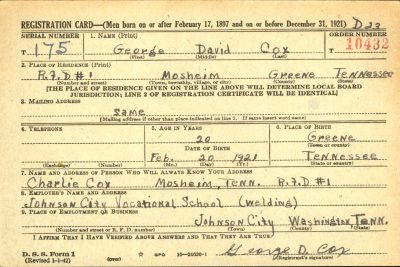 REGISTRATION CARD—(Men born on or after February 17, 1897 and on or before December 31, 1921) D 23
SERIAL NUMBER 1. NAME (Print) ORDER NUMBER
T 175 George David Cox 10432
(First) (Middle) (Last)
2. PLACE OF RESIDENCE (Print)
R.F.D #1 Mosheim Greene Tennessee
(Number and street) (Town, township, village, or city) (County) (State)
[THE PLACE OF RESIDENCE GIVEN ON THE LINE ABOVE WILL DETERMINE LOCAL BOARD
JURISDICTION; LINE 2 OF REGISTRATION CERTIFICATE WILL BE IDENTICAL]
3. MAILING ADDRESS
Same
[Mailing address if other than place indicated on line 2. If same insert word same]
4. TELEPHONE 5. AGE IN YEARS 6. PLACE OF BIRTH
20 Greene
DATE OF BIRTH (Town or county)
Feb. 20 1921 Tennessee
(Exchange) (Number) (Mo.) (Day) (Yr.) (State or country)
7. NAME AND ADDRESS OF PERSON WHO WILL ALWAYS KNOW YOUR ADDRESS
Charlie Cox Mosheim, Tenn. R.F.D #1
8. EMPLOYER'S NAME AND ADDRESS
Johnson City Vocational School (Welding)
9. PLACE OF EMPLOYMENT OR BUSINESS
Johnson City Washington, Tenn.
(Number and street or R. F. D. number) (Town) (County) (State)
I AFFIRM THAT I HAVE VERIFIED ABOVE ANSWERS AND THAT THEY ARE TRUE.
D. S. S. Form 1 George D. Cox
(Revised 1-1-42) (over) GPO 16—21630-1 (Registrant's signature)